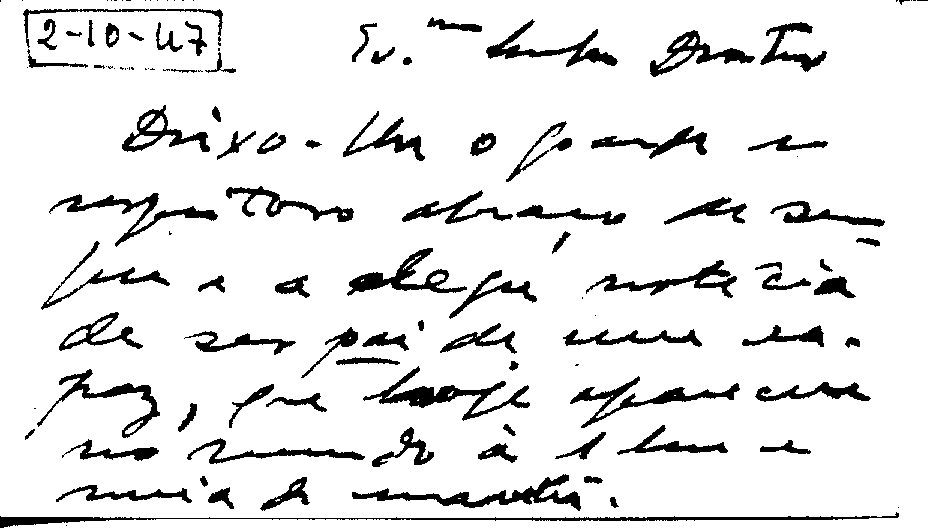 2-10-47 Ex.mo Senhor Doutor
Deixo-lhe o grande e
respeitoso abraço de sem-
pre e a alegre notícia
de ser pai de um ra-
paz, que hoje apareceu
no mundo à 1 hora e
meia da manhã.